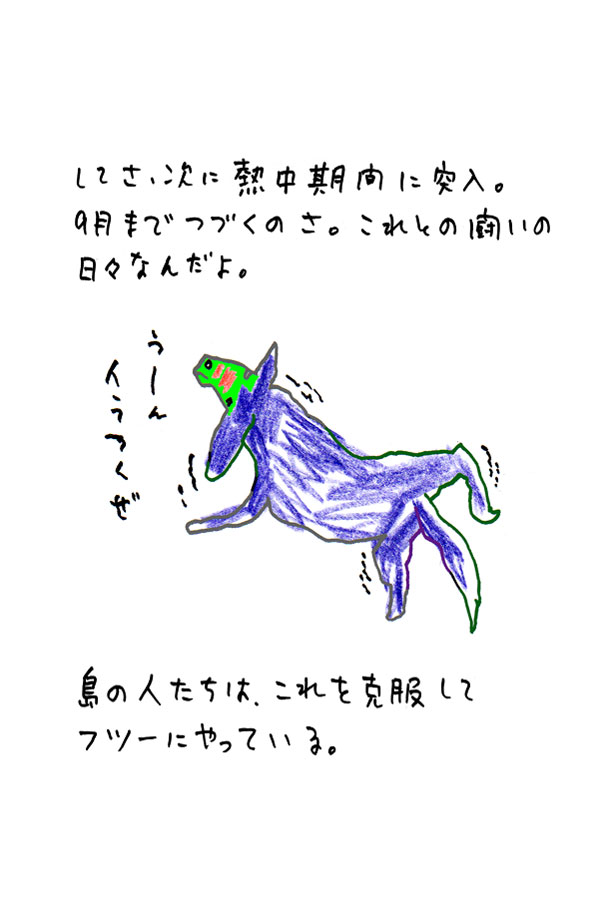 してさ、次に熱中期間に突入。
9月までつづくのさ。これとの闘いの
日々なんだよ。
うーん
人うつくぜ
島の人たちは、これを克服して
フツーにやっている。